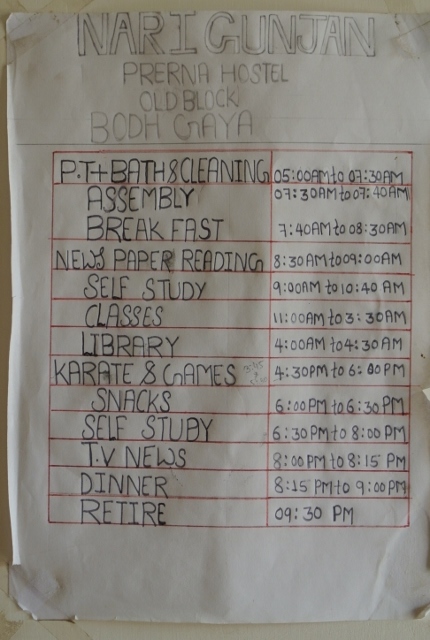 NARI GUNJAN
PRERNA HOSTEL
OLD BLOCK
BODH GAYA
P.T+BATH&CLEANING 05:00AM to 07:30AM
ASSEMBLY 07:30AM to 07:40AM
BREAK FAST 7:40AM to 08:30AM
NEWS PAPER READING 8:30AM to 09:00AM
SELF STUDY 9:00AM to 10:40 AM
CLASSES 11:00AM to 3:30AM
LIBRARY 4:00AM to 4:30AM
KARATE & GAMES 4:30PM to 6:00PM
SNACKS 6:00PM to 6:30PM
SELF STUDY 6:30PM to 8:00PM
T.V NEWS 8:00PM to 8:15 PM
DINNER 8:15 PM to 9:00PM
RETIRE 09:30 PM